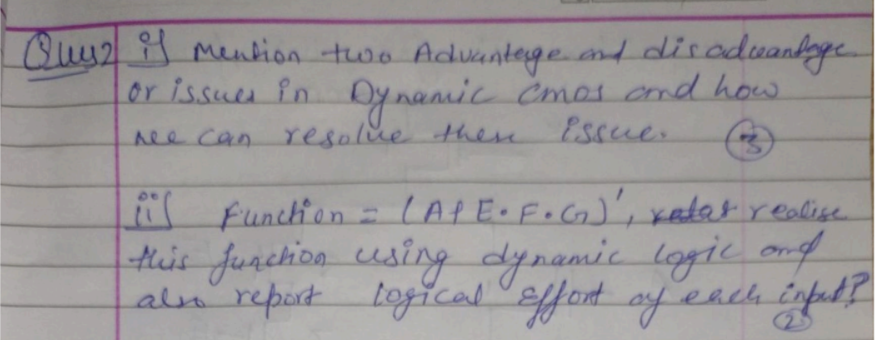 Quiz 2 i) Mention two Advantage and disadvantage
or issues in Dynamic cmos and how
we can resolve these issue. (3)
ii) Function = (A+E.F.G)', realise
this function using dynamic logic and
also report logical effort of each input?
(2)